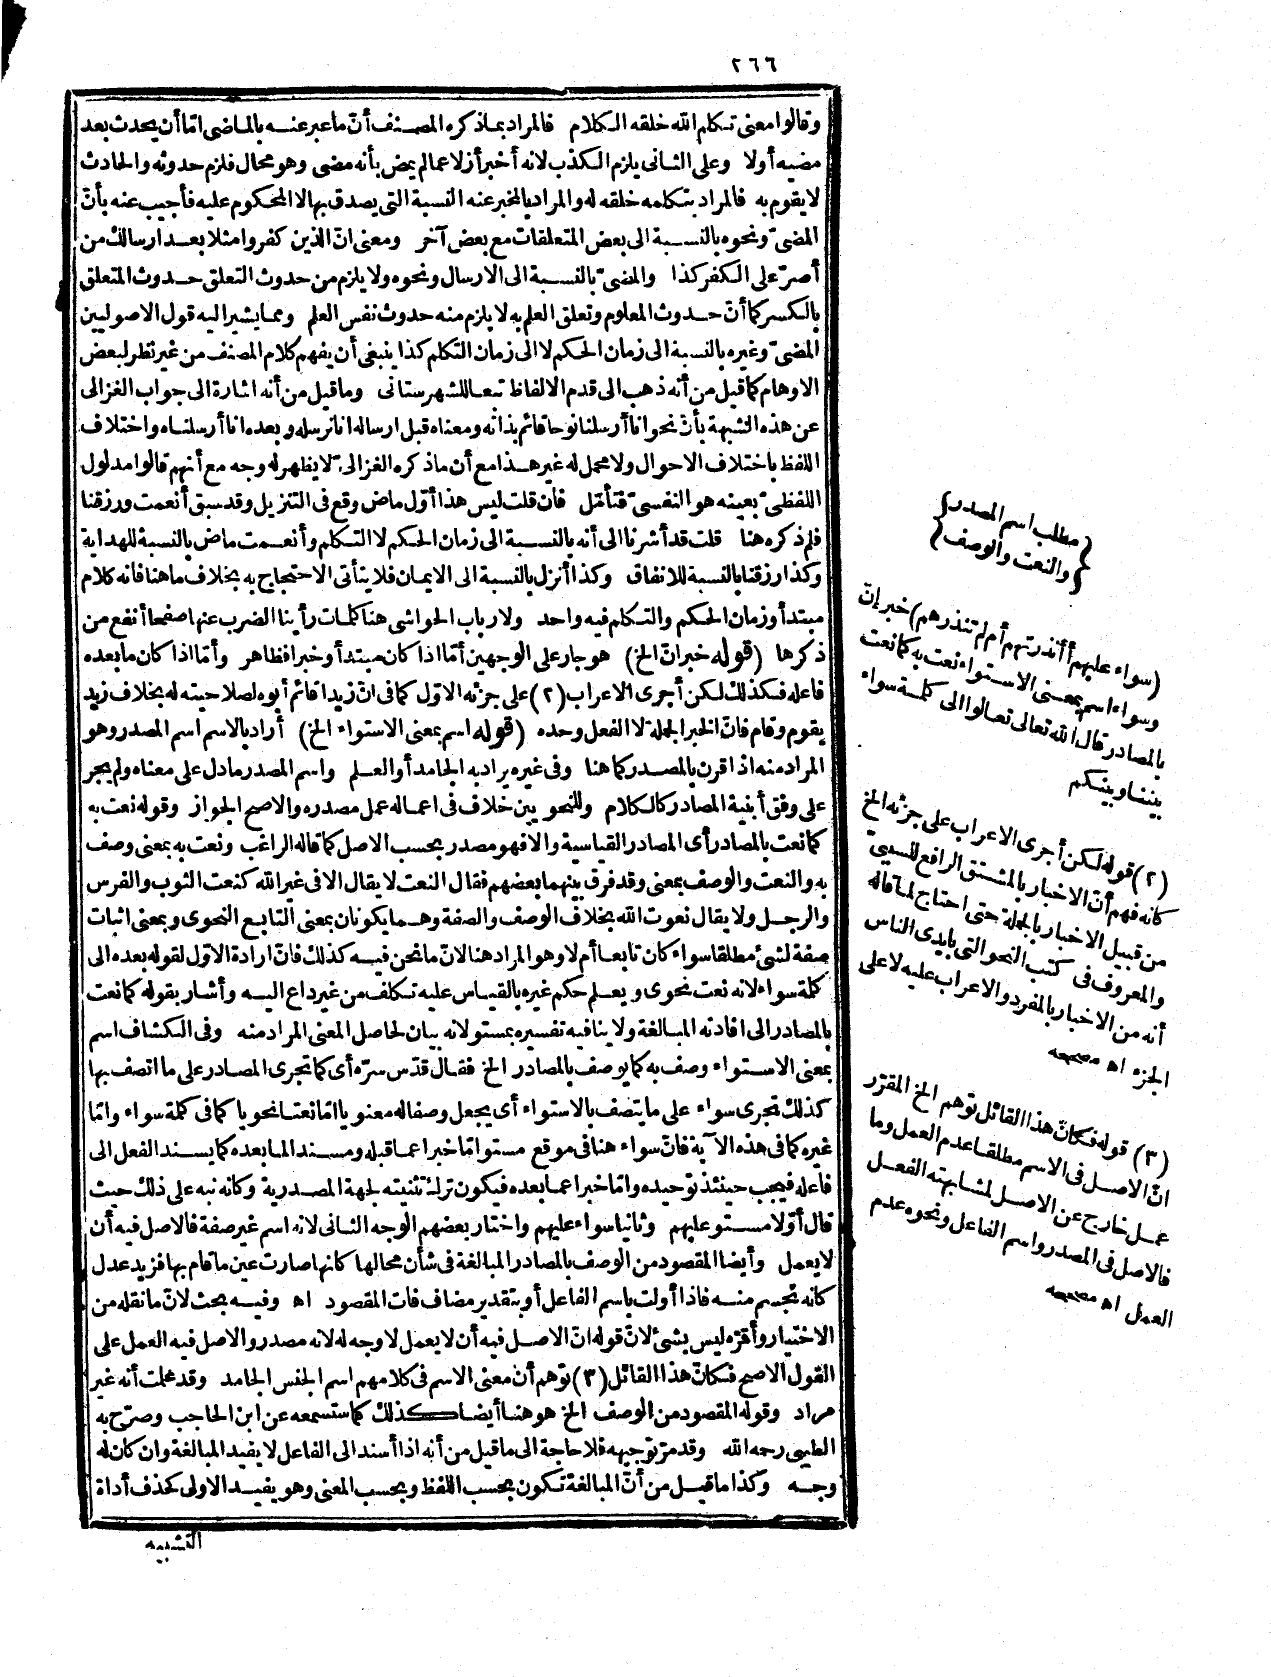 ٢٦٦
وقالوا معنى تكلم الله خلقه الكلام فالمراد بما ذكره المصنف أنّ ما عبر عنه بالماضي امّا أن يحدث بعد
مضيه أولا وعلى الثاني يلزم الكذب لانه أخبر أزلا عما لم يمض بأنه مضى وهو محال فلزم حدوثه والحادث
لا يقوم به فالمراد بتكلمه خلقه له والمراد بالمخبر عنه النسبة التي يصدق بها لا المحكوم عليه فأجيب عنه بأنّ
المضيّ ونحوه بالنسبة الى بعض المتعلقات مع بعض آخر ومعنى انّ الذين كفروا مثلا بعد ارسالك من
أصرّ على الكفر كذا والمضيّ بالنسبة الى الارسال ونحوه ولا يلزم من حدوث التعلق حدوث المتعلق
بالكسر كما أنّ حدوث المعلوم وتعلق العلم به لا يلزم منه حدوث نفس العلم ومما يشير اليه قول الاصوليين
المضيّ وغيره بالنسبة الى زمان الحكم لا الى زمان التكلم كذا ينبغي أن يفهم كلام المصنف من غير نظر لبعض
الاوهام كما قيل من أنه ذهب الى قدم الالفاظ تبعا للشهرستاني وما قيل من أنه اشارة الى جواب الغزالى
عن هذه الشبهة بأنّ نحو انا أرسلنا نوحا قائم بذاته ومعناه قبل ارساله انا نرسله وبعده انا أرسلناه واختلاف
اللفظ باختلاف الاحوال ولا محمل له غير هذا مع أن ماذكره الغزالى لا يظهر له وجه مع أنهم قالوا مدلول
اللفظيّ بعينه هو النفسيّ فتأمّل فان قلت ليس هذا أوّل ماض وقع في التنزيل وقد سبق أنعمت ورزقنا
فلم ذكره هنا قلت قد أشرنا الى أنه بالنسبة الى زمان الحكم لا التكلم وأنعمت ماض بالنسبة للهداية
وكذا رزقنا بالنسبة للانفاق وكذا أنزل بالنسبة الى الايمان فلا يتأتى الاحتجاج به بخلاف ما هنا فانه كلام
مبتدأ وزمان الحكم والتكلم فيه واحد ولارباب الحواشي هنا كلمات رأينا الضرب عنها صفحا أنفع من
ذكرها (قوله خبر انّ الخ) هو جار على الوجهين أمّا اذا كان مبتدأ وخبرا فظاهر وأمّا اذا كان ما بعده
فاعله فكذلك لكن أجرى الاعراب (٢) على جزئه الاوّل كما في انّ زيدا قائم أبوه لصلاحيته له بخلاف زيد
يقوم وقام فانّ الخبر الجملة لا الفعل وحده (قوله اسم بمعنى الاستواء الخ) أراد بالاسم اسم المصدر وهو
المراد منه اذا قرن بالمصدر كما هنا وفي غيره يراد به الجامد أو العلم واسم المصدر ما دل على معناه ولم يجر
على وفق أبنية المصادر كالكلام وللنحويين خلاف في اعماله عمل مصدره والاصح الجواز وقوله نعت به
كما نعت بالمصادر أى المصادر القياسية والا فهو مصدر بحسب الاصل كما قاله الراغب ونعت به بمعنى وصف
به والنعت والوصف بمعنى وقد فرق بينهما بعضهم فقال النعت لا يقال الا في غير الله كنعت الثوب والفرس
والرجل ولا يقال نعوت الله بخلاف الوصف والصفة وهما يكونان بمعنى التابع النحوى وبمعنى اثبات
صفة لشئ مطلقا سواء كان تابعا أم لا وهو المراد هنا لانّ ما نحن فيه كذلك فانّ ارادة الاوّل لقوله بعده الى
كلمة سواء لانه نعت نحوى ويعلم حكم غيره بالقياس عليه تكلف من غير داع اليه وأشار بقوله كما نعت
بالمصادر الى افادته المبالغة ولا ينافيه تفسيره بمستو لانه بيان لحاصل المعنى المراد منه وفي الكشاف اسم
بمعنى الاستواء وصف به كما يوصف بالمصادر الخ فقال قدّس سرّه أى كما تجرى المصادر على ما اتصف بها
كذلك تجرى سواء على ما يتصف بالاستواء أى يجعل وصفا له معنويا امّا نعتا نحويا كما في كلمة سواء وامّا
غيره كما في هذه الآية فانّ سواء هنا في موقع مستو امّا خبرا عما قبله ومسندا لما بعده كما يسند الفعل الى
فاعله فيجب حينئذ توحيده وامّا خبرا عما بعده فيكون ترك تثنيته لجهة المصدرية وكأنه نبه على ذلك حيث
قال أوّلا مستو عليهم وثانيا سواء عليهم واختار بعضهم الوجه الثاني لانه اسم غير صفة فالاصل فيه أن
لا يعمل وأيضا المقصود من الوصف بالمصادر المبالغة في شأن محالها كأنها صارت عين ما قام بها فزيد عدل
كأنه تجسم منه فاذا أولت باسم الفاعل أو بتقدير مضاف فات المقصود اه وفيه بحث لانّ ما نقله من
الاختيار وأقرّه ليس بشئ لانّ قوله انّ الاصل فيه أن لا يعمل لا وجه له لانه مصدر والاصل فيه العمل على
القول الاصح فكانّ هذا القائل (٣) توهم أن معنى الاسم في كلامهم اسم الجنس الجامد وقد علمت أنه غير
مراد وقوله المقصود من الوصف الخ هو هنا أيضا كذلك كما ستسمعه عن ابن الحاجب وصرّح به
الطيبي رحمه الله وقد مرّ توجيهه فلا حاجة الى ما قيل من أنه اذا أسند الى الفاعل لا يفيد المبالغة وان كان له
وجه وكذا ما قيل من أنّ المبالغة تكون بحسب اللفظ وبحسب المعنى وهو يفيد الاولى كحذف أداة
التشبيه
مطلب اسم المصدر
والنعت والوصف
(سواء عليهم أأنذرتهم أم لم تنذرهم) خبر إنّ
وسواء اسم بمعنى الاستواء نعت به كما نعت
بالمصادر قال الله تعالى تعالوا الى كلمة سواء
بيننا وبينكم
(٢) قوله لكن أجرى الاعراب على جزئه الخ
كأنه فهم أنّ الاخبار بالمشتق الرافع للسببيّ
من قبيل الاخبار بالجملة حتى احتاج لما قاله
والمعروف في كتب النحو التي بايدى الناس
أنه من الاخبار بالمفرد والاعراب عليه لا على
الجزء اه مصححه
(٣) قوله فكانّ هذا القائل توهم الخ المقرّر
انّ الاصل في الاسم مطلقا عدم العمل وما
عمل خارج عن الاصل لمشابهته الفعل
فالاصل في المصدر واسم الفاعل ونحوه عدم
العمل اه مصححه